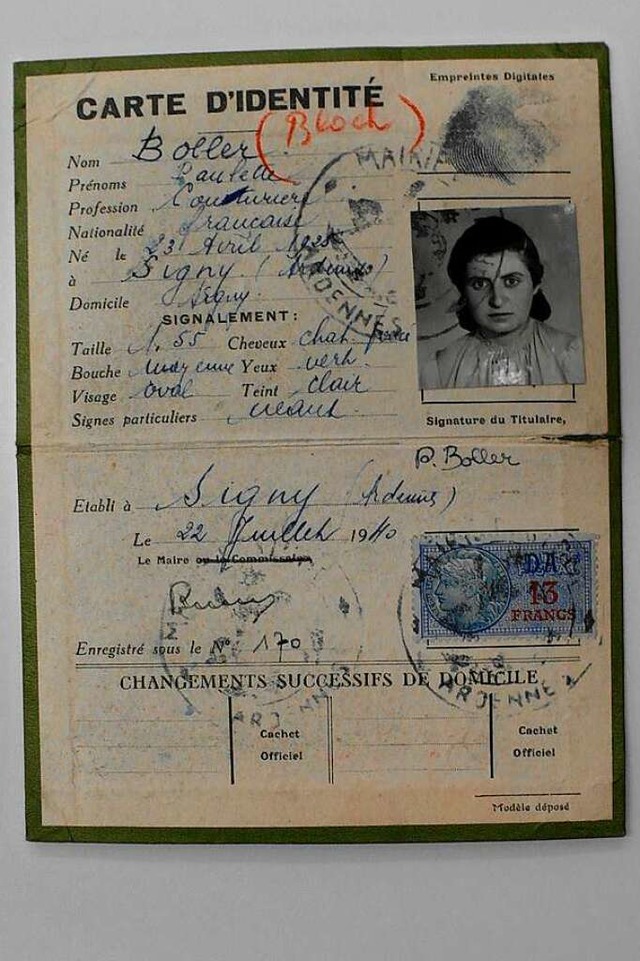 Empreintes Digitales
CARTE D'IDENTITÉ
(Bloch)
Nom Boller
Prénoms Paulette
Profession Couturière
Nationalité française
Né le 23 Avril
à Signy (Ardennes)
Domicile Signy
SIGNALEMENT:
Taille 1.55 Cheveux chat.
Bouche moyenne Yeux verts
Visage oval Teint clair
Signes particuliers néant
Signature du Titulaire,
P. Boller
Etabli à Signy (Ardennes)
Le 22 Juillet 1940
Le Maire ou le Commissaire
DA
13
FRANCS
Enregistré sous le N° 170
CHANGEMENTS SUCCESSIFS DE DOMICILE
Cachet
Officiel
Cachet
Officiel
Modèle déposé
MAIRIE
ARDENNES
ARDENNES
ARDENNES